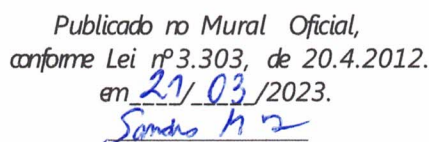 Publicado no Mural Oficial,
conforme Lei nº 3.303, de 20.4.2012.
em 21/03/2023.